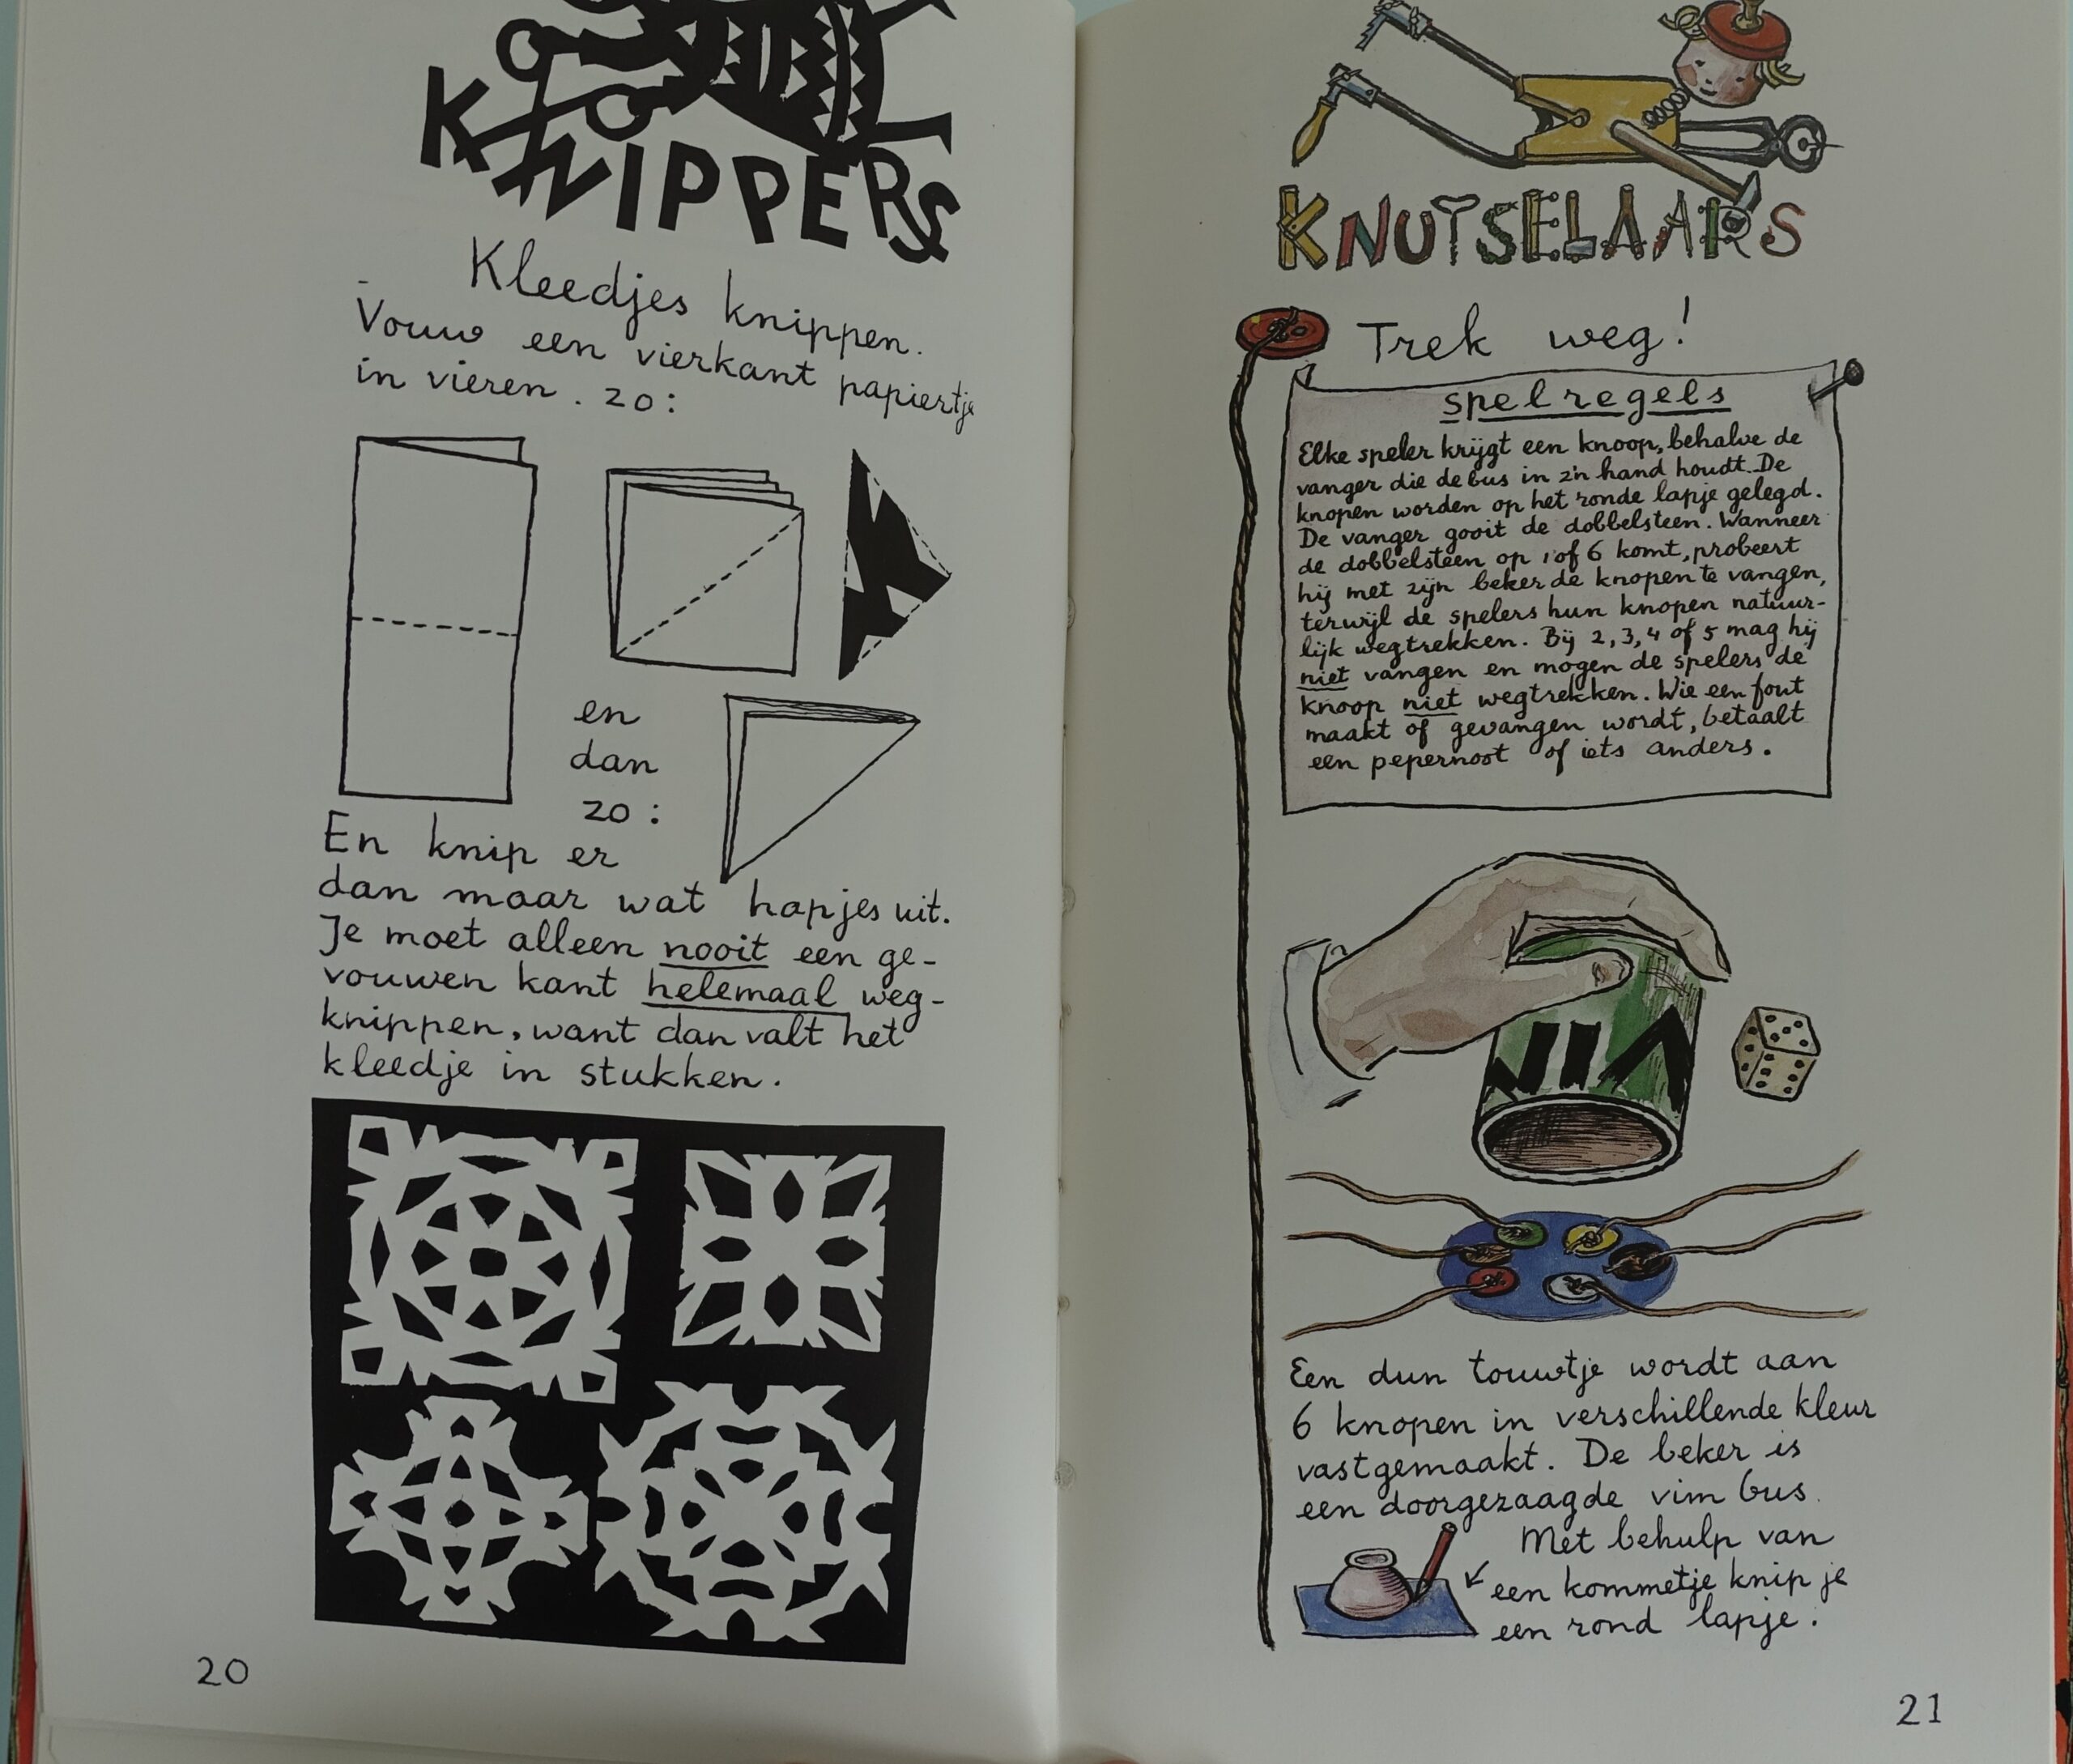 KNIPPERS
Kleedjes knippen.
Vouw een vierkant papiertje
in vieren. zo:
en
dan
zo:
En knip er
dan maar wat hapjes uit.
Je moet alleen nooit een ge-
vouwen kant helemaal weg-
knippen, want dan valt het
kleedje in stukken.
20
KNUTSELAARS
Trek weg!
spelregels
Elke speler krijgt een knoop, behalve de
vanger die de bus in z'n hand houdt. De
knopen worden op het ronde lapje gelegd.
De vanger gooit de dobbelsteen. Wanneer
de dobbelsteen op 1 of 6 komt, probeert
hij met zijn beker de knopen te vangen,
terwijl de spelers hun knopen natuur-
lijk wegtrekken. Bij 2, 3, 4 of 5 mag hij
niet vangen en mogen de spelers de
knoop niet wegtrekken. Wie een fout
maakt of gevangen wordt, betaalt
een pepernoot of iets anders.
VIM
Een dun touwtje wordt aan
6 knopen in verschillende kleur
vastgemaakt. De beker is
een doorgezaagde vim bus.
Met behulp van
een kommetje knip je
een rond lapje.
21